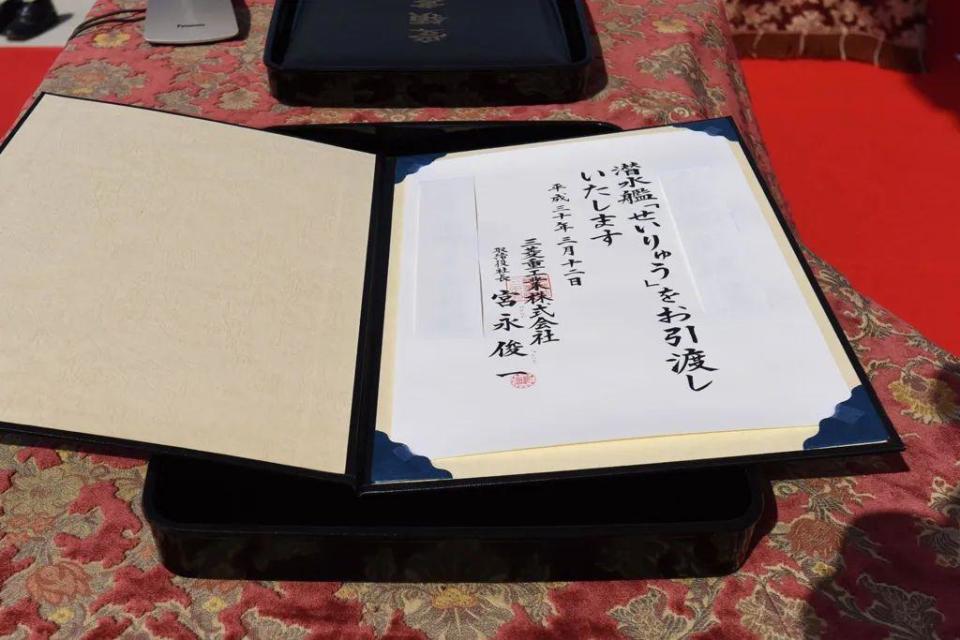 潜水艦「せいりゅう」をお引渡し
いたします
平成三十年三月十二日
三菱重工業株式会社
取締役社長 宮永俊一
Panasonic